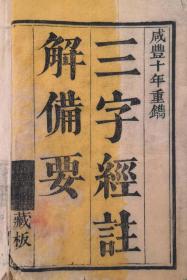 咸豐十年重鐫
三字經註
解備要
藏板